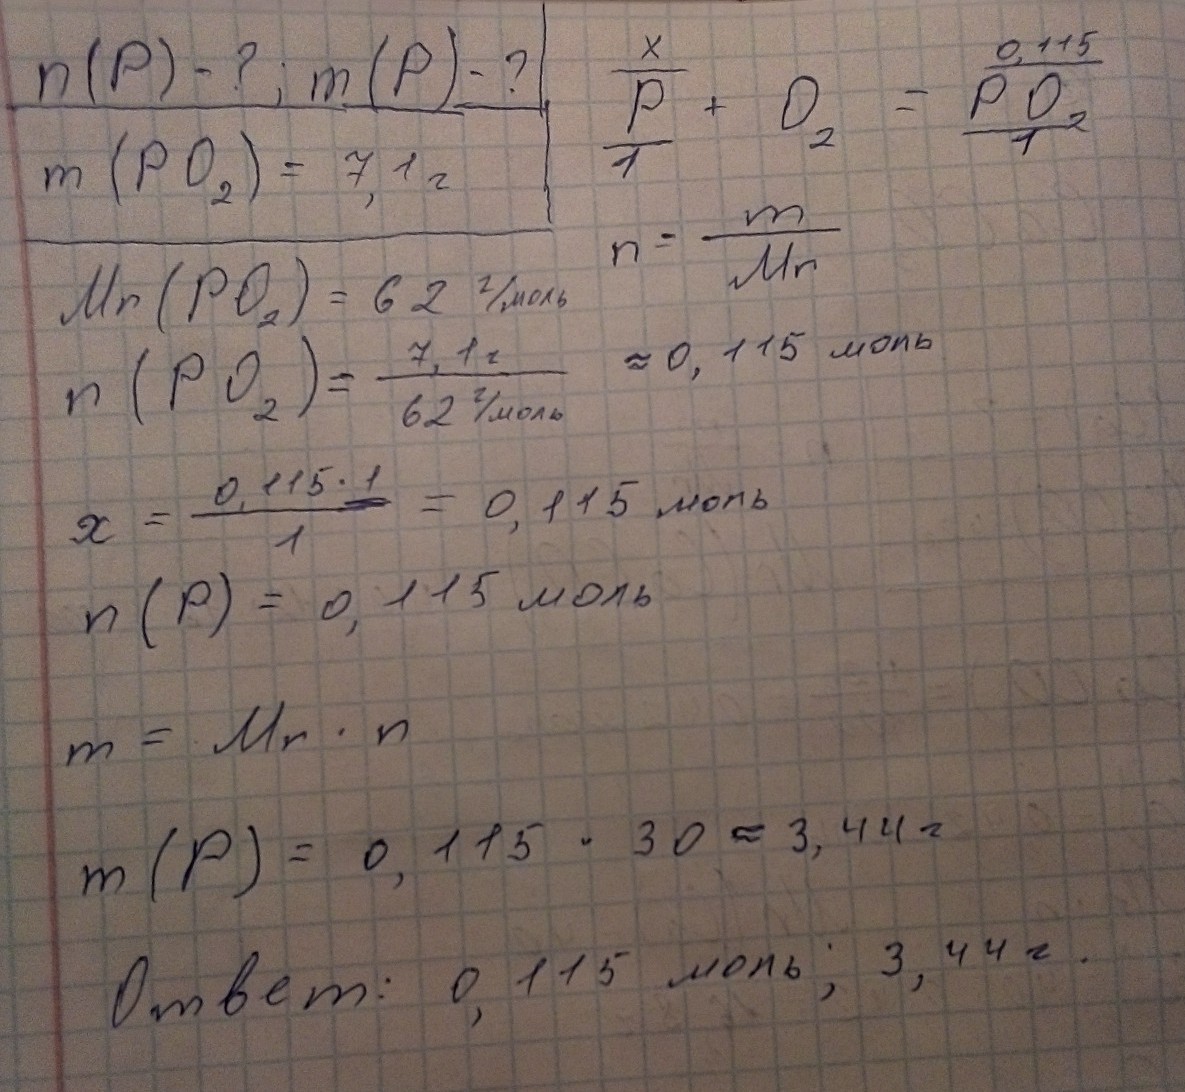 n(P) - ? ; m(P) - ?
m(PO₂) = 7,1 г
x 0,115
P + O₂ = PO₂
1 1
n = m/Mr
Mr(PO₂) = 62 г/моль
n(PO₂) = 7,1 г / 62 г/моль ≈ 0,115 моль
x = 0,115 · 1 / 1 = 0,115 моль
n(P) = 0,115 моль
m = Mr · n
m(P) = 0,115 · 30 ≈ 3,44 г
Ответ: 0,115 моль; 3,44 г.